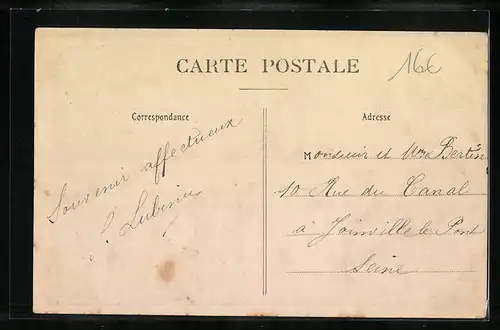 CARTE POSTALE
16€
Correspondance
Adresse
Souvenir affectueux
Monsieur et Mme Bertin
10 Rue du Canal
à Joinville le Pont
Seine